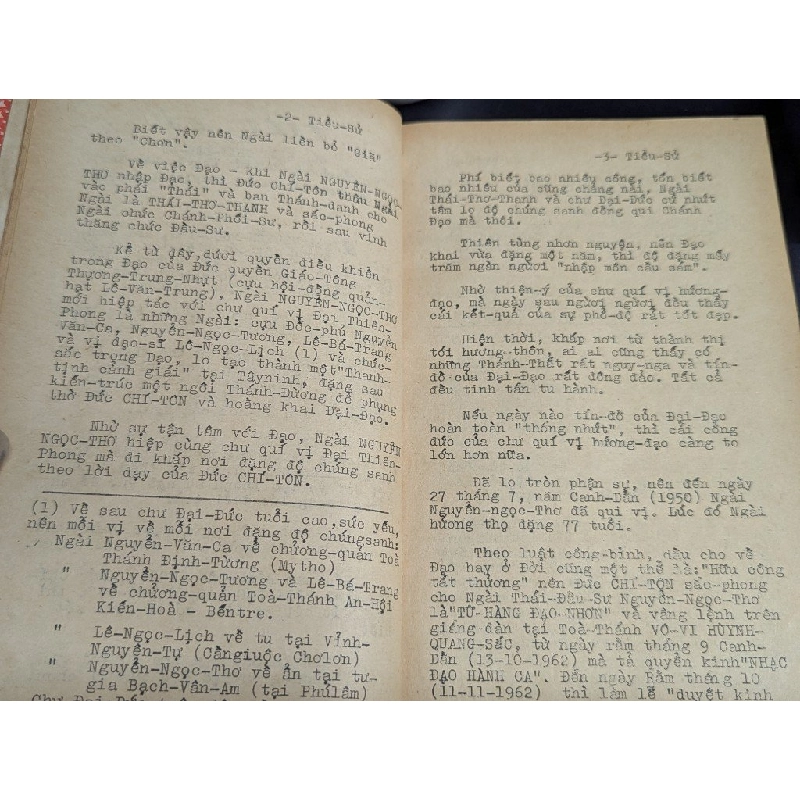 -2- Tiểu-Sử
Biết vậy nên Ngài liền bỏ "Giả"
theo "Chơn".
Về việc Đạo - khi Ngài NGUYỄN-NGỌC-
THƠ nhập Đạo, thì Đức CHÍ-TÔN thâu Ngài
vào phái "Thái" và ban Thánh-danh cho
Ngài là THÁI-THƠ-THANH và sắc-phong
Ngài chức Chánh-Phối-Sư, rồi sau vinh
thăng chức Đầu-Sư.
Kể từ đây, dưới quyền điều khiển
trong Đạo của Đức quyền Giáo-Tông
Thượng-Trung-Nhựt (cựu hội-đồng quản-
hạt Lê-Văn-Trung), Ngài NGUYỄN-NGỌC-THƠ
mới hiệp tác với chư quí vị Đại Thiên-
Phong là những Ngài: cựu Đốc-phủ Nguyễn
Văn-Ca, Nguyễn-Ngọc-Tương, Lê-Bá-Trang
và vị đạo-sĩ Lê-Ngọc-Lịch (1) và chức-
sắc trong Đạo, lo tạo thành một "Thanh-
tịnh cảnh giái" tại Tâyninh, đặng sau
kiến-trúc một ngôi Thánh-Đường để phụng
thờ Đức CHÍ-TÔN và hoằng khai Đại-Đạo.
Nhờ sự tận tâm với Đạo, Ngài NGUYỄN
NGỌC-THƠ hiệp cùng chư quí vị Đại Thiên-
Phong mà đi khắp nơi đặng độ chúng sanh
theo lời dạy của Đức CHÍ-TÔN.
(1) Về sau chư Đại-Đức tuổi cao, sức yếu,
nên mỗi vị về mỗi nơi đặng độ chúngsanh:
Ngài Nguyễn-Văn-Ca về chưởng-quản Toà
Thánh Định-Tường (Mytho)
" Nguyễn-Ngọc-Tương và Lê-Bá-Trang
về chưởng-quản Toà-Thánh An-Hội
Kiến-Hoà - Bếntre.
" Lê-Ngọc-Lịch về tu tại Vĩnh-
Nguyên-Tự (Cầngiuộc Chợlớn)
" Nguyễn-Ngọc-Thơ về ẩn tại tư-
gia Bạch-Vân-Am (tại Phúlâm)
Chư Đại Đức
-3- Tiểu-Sử
Phí biết bao nhiêu công, tốn biết
bao nhiêu của cũng chẳng nài, Ngài
Thái-Thơ-Thanh và chư Đại-Đức cứ nhứt
tâm lo độ chúng sanh đồng qui Chánh
Đạo mà thôi.
Thiên tùng nhơn nguyện, nên Đạo
khai vừa đặng một năm, thì độ đặng mấy
trăm ngàn người "nhập môn cầu sám".
Nhờ thiện-ý của chư quí vị hướng-
đạo, mà ngày sau người người đều thấy
cái kết-quả của sự phổ-độ rất tốt đẹp.
Hiện thời, khắp nơi từ thành thị
tới hương-thôn, ai ai cũng thấy có
những Thánh-Thất rất nguy-nga và tín-
đồ của Đại-Đạo rất đông đảo. Tất cả
đều tinh tấn tu hành.
Nếu ngày nào tín-đồ của Đại-Đạo
hoàn toàn "thống nhứt", thì cái công
đức của chư quí vị hướng-đạo càng to
lớn hơn nữa.
Đã lo tròn phận sự, nên đến ngày
27 tháng 7, năm Canh-Dần (1950) Ngài
Nguyễn-ngọc-Thơ đã qui vị. Lúc đó Ngài
hưởng thọ đặng 77 tuổi.
Theo luật công-bình, dầu cho về
Đạo hay ở Đời cũng một thể là:"Hữu công
tất thưởng" nên Đức CHÍ-TÔN sắc-phong
cho Ngài Thái-Đầu-Sư Nguyễn-Ngọc-Thơ
là"TỪ-HÀNG ĐẠO-NHƠN" và vâng lệnh trên
giáng đàn tại Toà-Thánh VÔ-VI HUỲNH-
QUANG-SẮC, từ ngày rằm tháng 9 Canh-
Dần (13-10-1962) mà tả quyển kinh"NHẠC
ĐẠO HÀNH CA". Đến ngày Rằm tháng 10
(11-11-1962) thì làm lễ "duyệt kinh